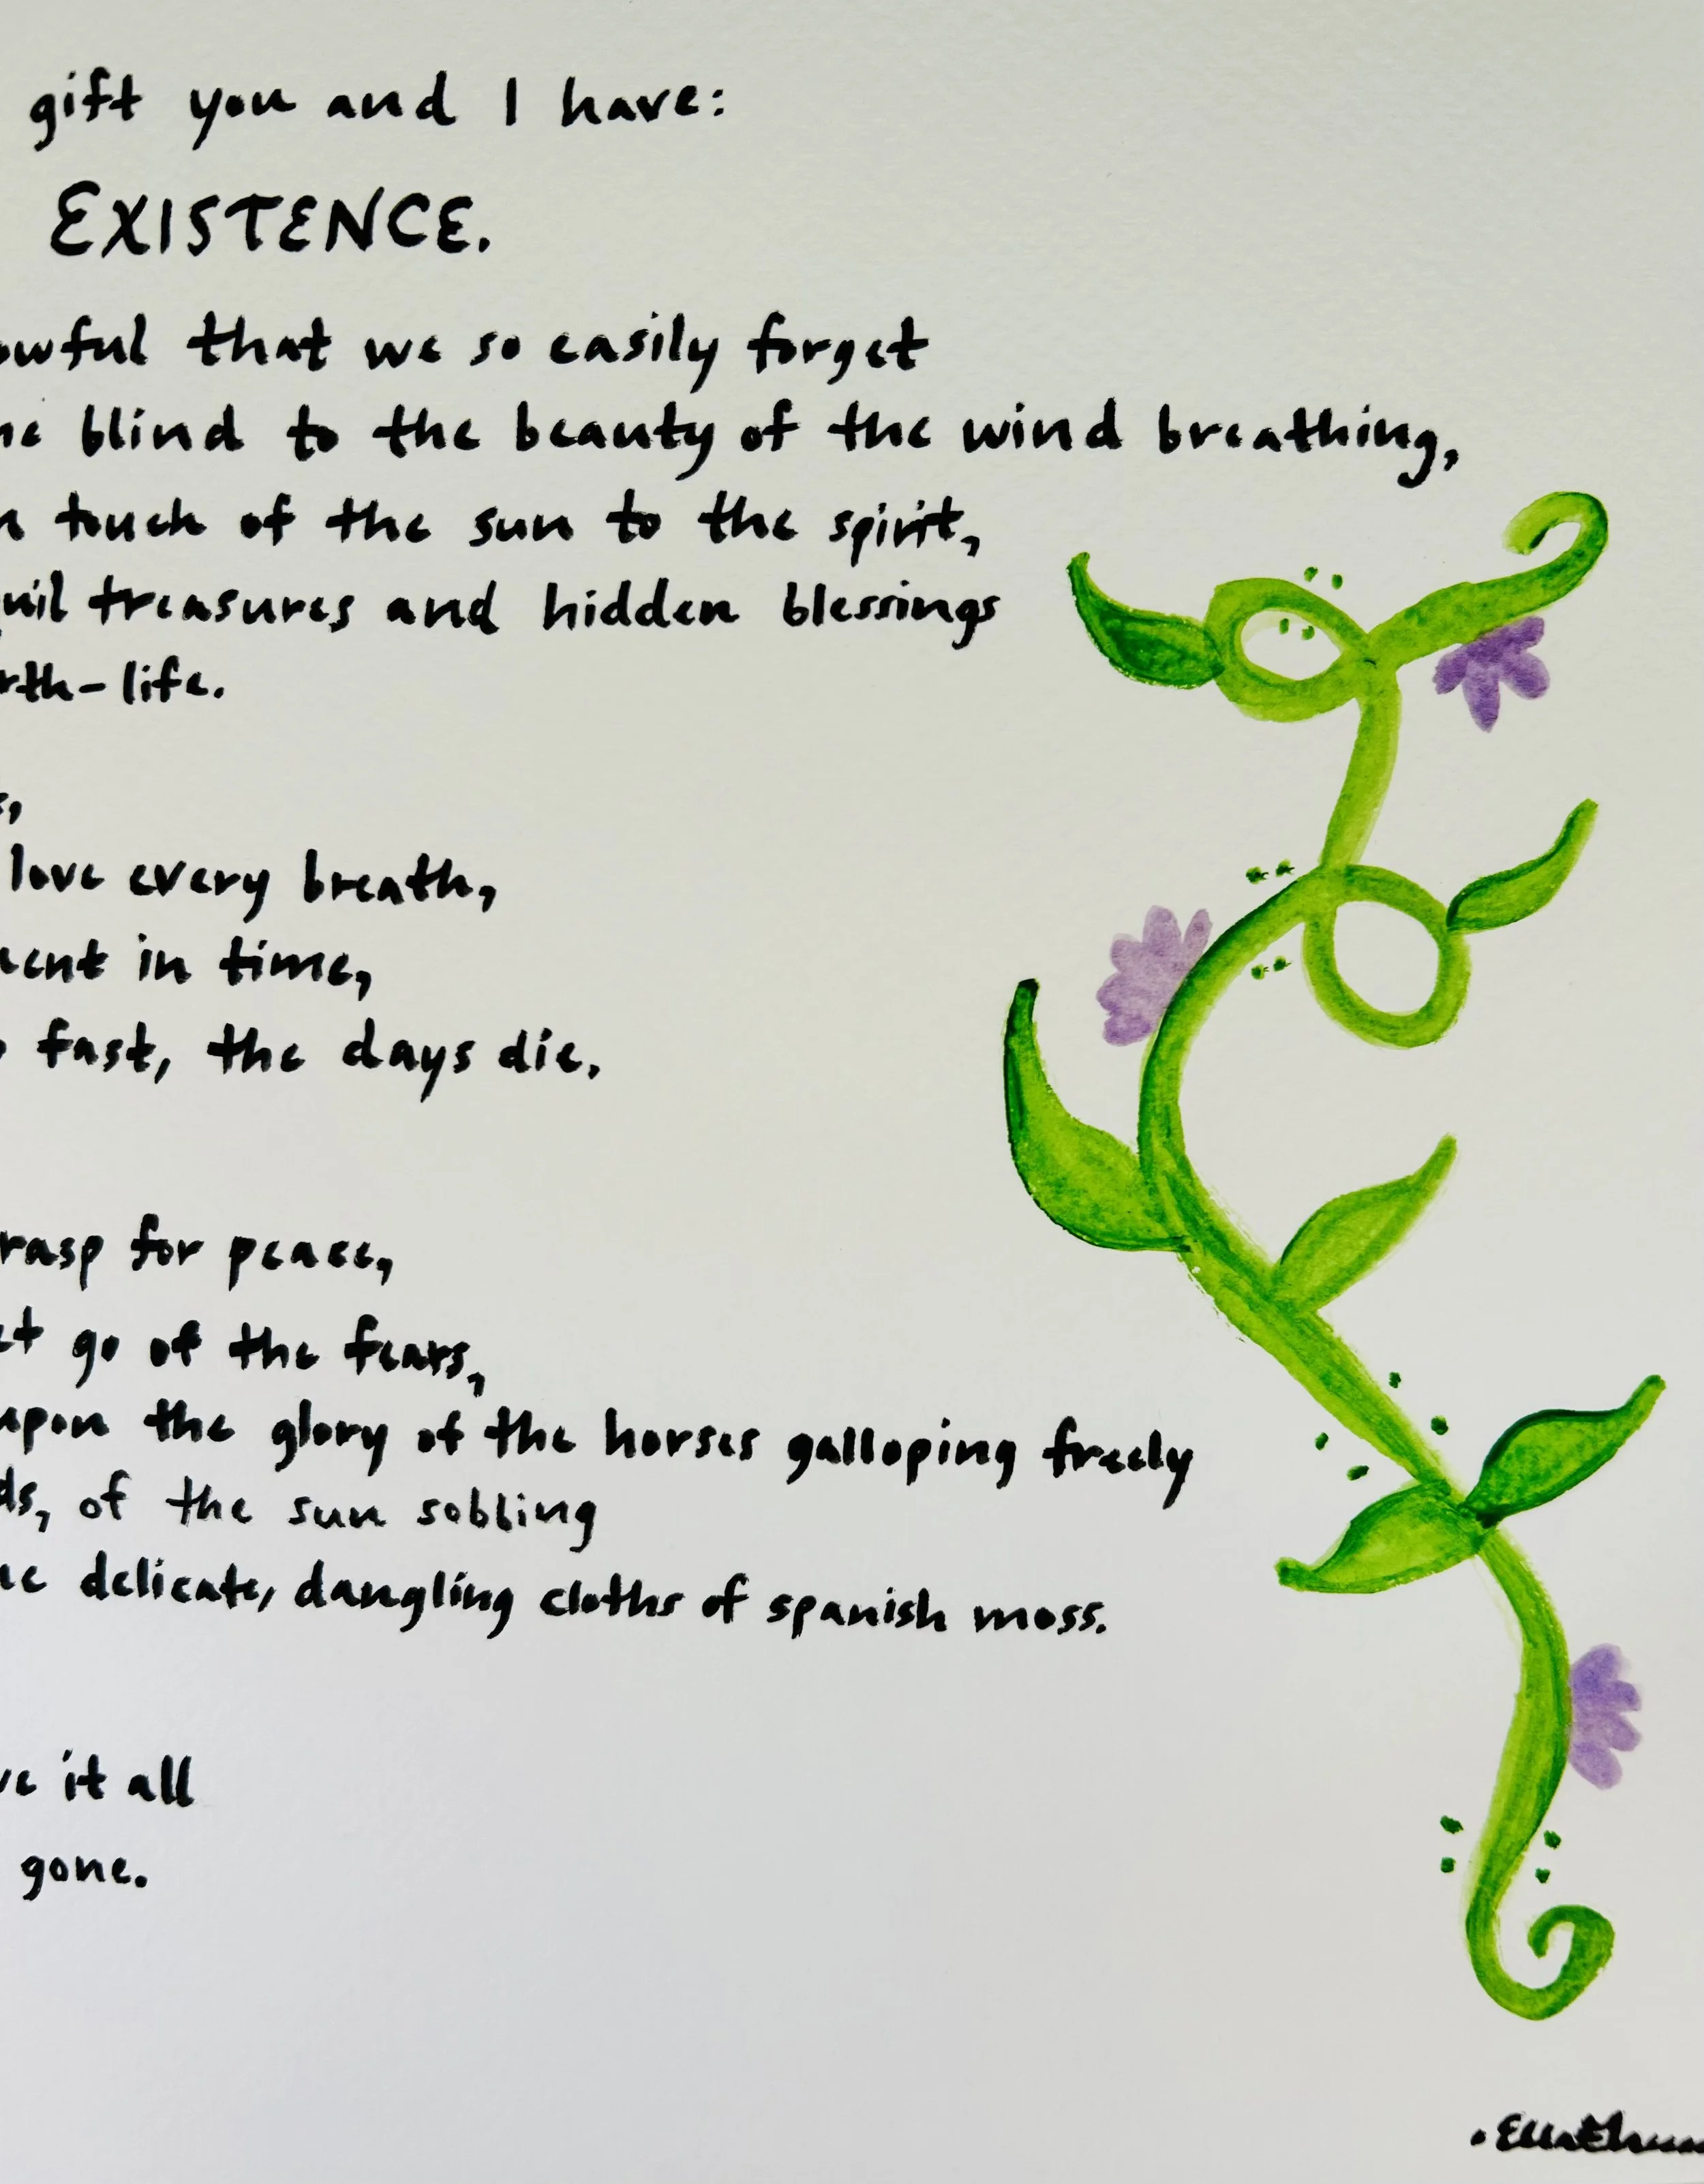 gift you and I have:
EXISTENCE.
owful that we so easily forget
blind to the beauty of the wind breathing,
touch of the sun to the spirit,
treasures and hidden blessings
rth-life.
love every breath,
in time,
fast, the days die.
rasp for peace,
go of the fears,
upon the glory of the horses galloping freely
ds, of the sun sobbing
delicate, dangling cloths of spanish moss.
it all
gone.